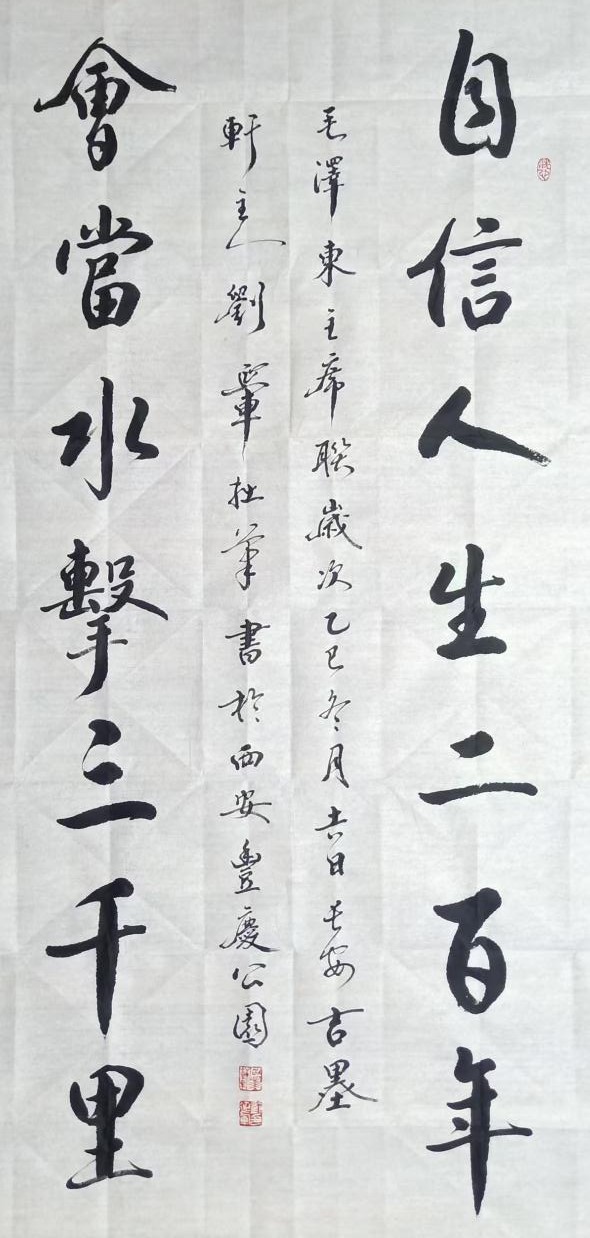 自信人生二百年
毛澤東主席聯歲次乙巳冬月吉日長安古墨
軒主人劉拙筆書於西安豐慶公園
會當水擊三千里